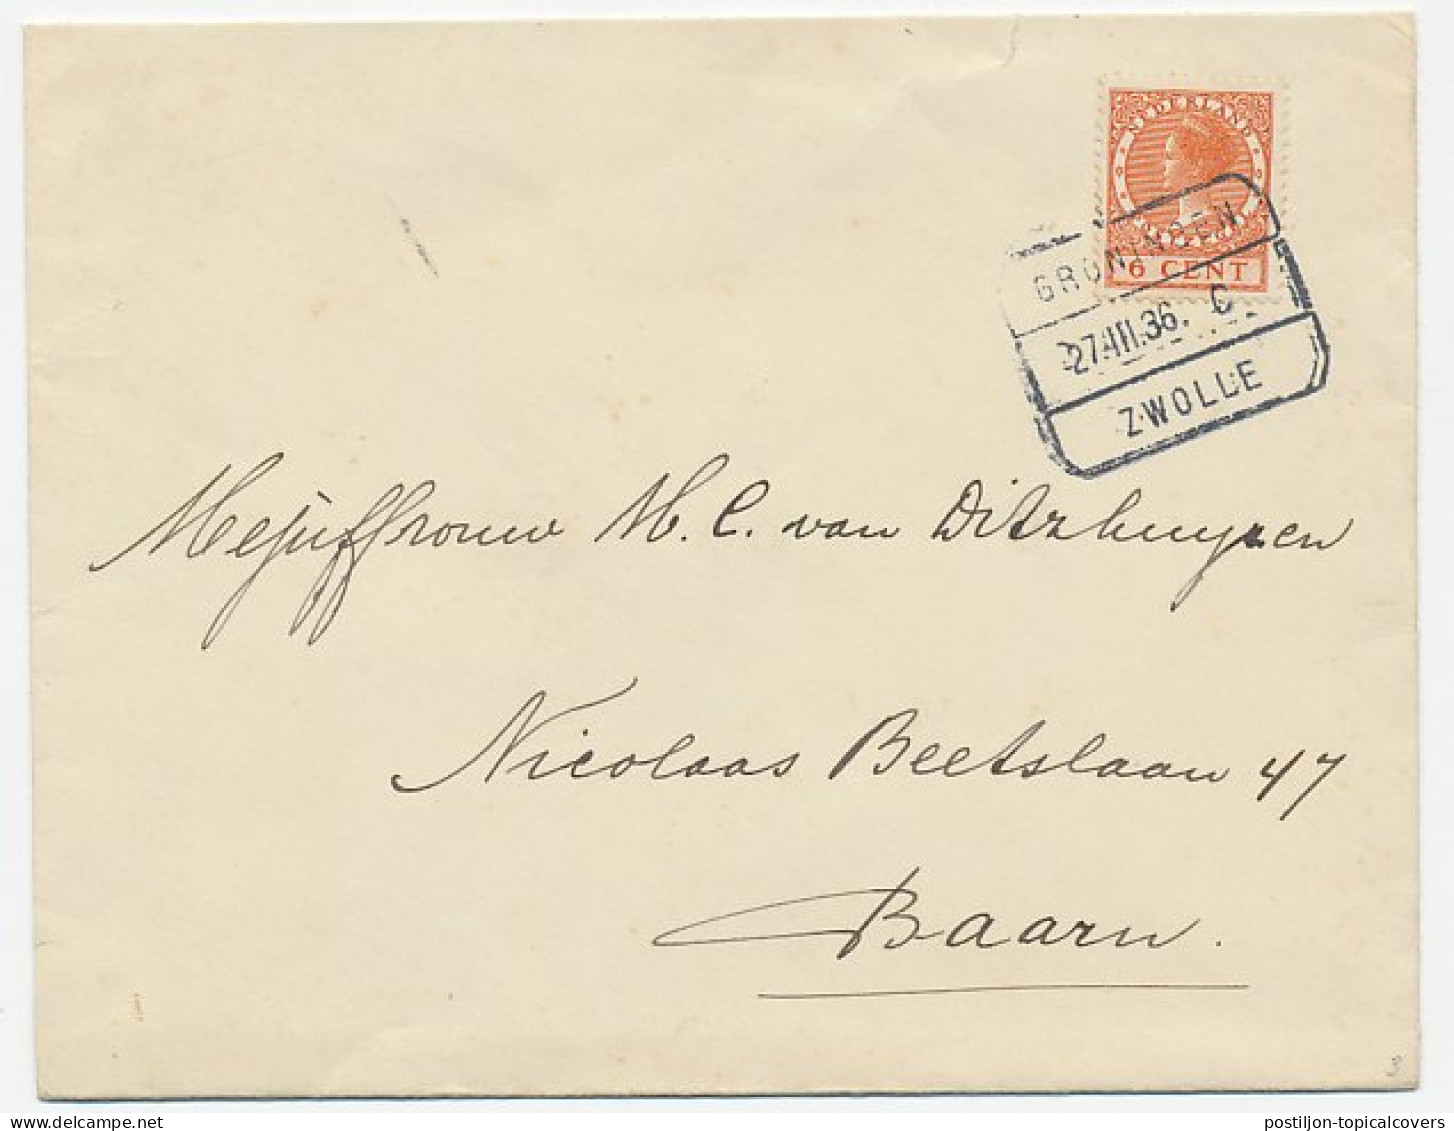 NEDERLAND
6 CENT
GRONINGEN
27.III.36. C
ZWOLLE
Mejuffrouw M. C. van Ditzhuyzen
Nicolaas Beetslaan 47
Baarn.
3
postiljon-topicalcovers